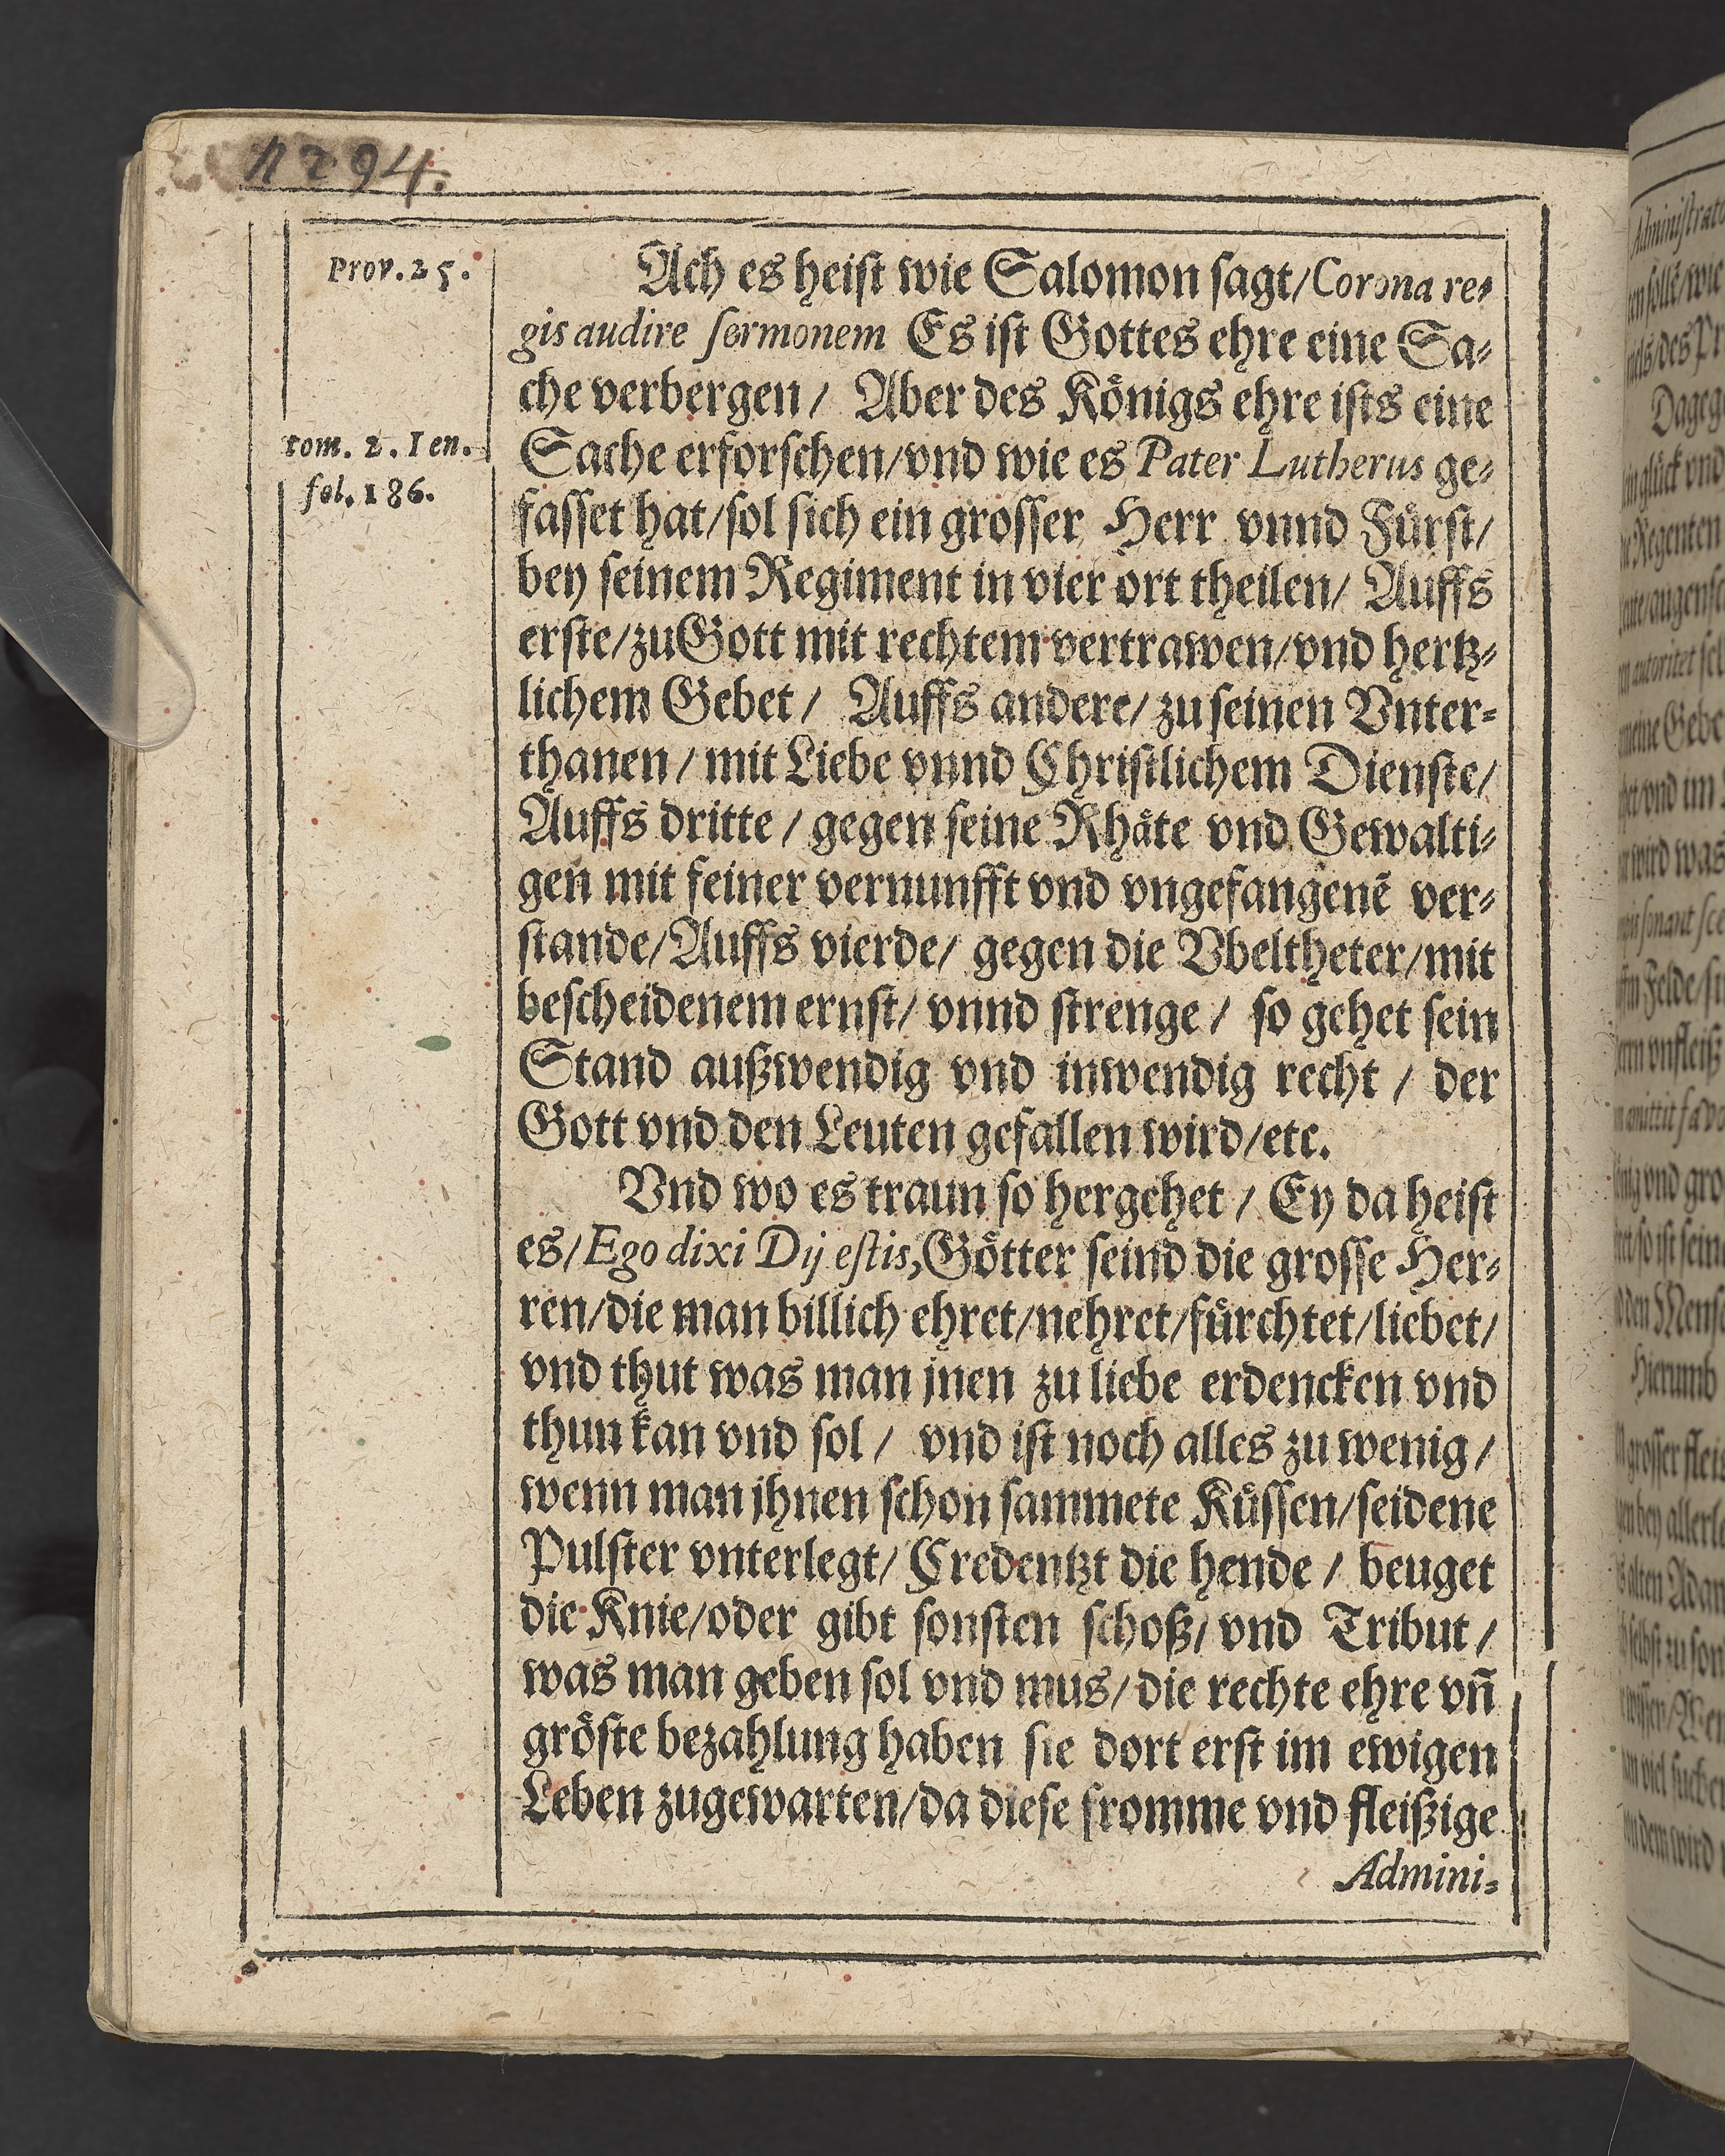 1294.
Prov. 25.
Ach es heiſt wie Salomon ſagt/ Corona re⸗
gis audire ſermonem Es iſt Gottes ehre eine Sa⸗
che verbergen/ Aber des Koͤnigs ehre iſts eine
tom. 2. Ien.
Sache erforſchen/ vnd wie es Pater Lutherus ge⸗
fol. 186.
faſſet hat/ ſol ſich ein groſſer Herr vnnd Fuͤrſt/
bey ſeinem Regiment in vier ort theilen/ Auffs
erſte/ zu Gott mit rechtem vertrawen/ vnd hertz⸗
lichem Gebet/ Auffs andere/ zu ſeinen Vnter⸗
thanen/ mit Liebe vnnd Chriſtlichem Dienſte/
Auffs dritte/ gegen ſeine Rhaͤte vnd Gewalti⸗
gen mit feiner vernunfft vnd vngefangenẽ ver⸗
ſtande/ Auffs vierde/ gegen die Vbeltheter/ mit
beſcheidenem ernſt/ vnnd ſtrenge/ ſo gehet ſein
Stand außwendig vnd inwendig recht/ der
Gott vnd den Leuten gefallen wird/ etc.
Vnd wo es traun ſo hergehet/ Ey da heiſt
es/ Ego dixi Dij eſtis, Goͤtter ſeind die groſſe Her⸗
ren/ die man billich ehret/ nehret/ fuͤrchtet/ liebet/
vnd thut was man jnen zu liebe erdencken vnd
thun kan vnd ſol/ vnd iſt noch alles zu wenig/
wenn man jhnen ſchon ſammete Kuͤſſen/ ſeidene
Pulſter vnterlegt/ Credentzt die hende/ beuget
die Knie/ oder gibt ſonſten ſchoß/ vnd Tribut/
was man geben ſol vnd mus/ die rechte ehre vñ
groͤſte bezahlung haben ſie dort erſt im ewigen
Leben zugewarten/ da dieſe fromme vnd fleißige
Admini⸗